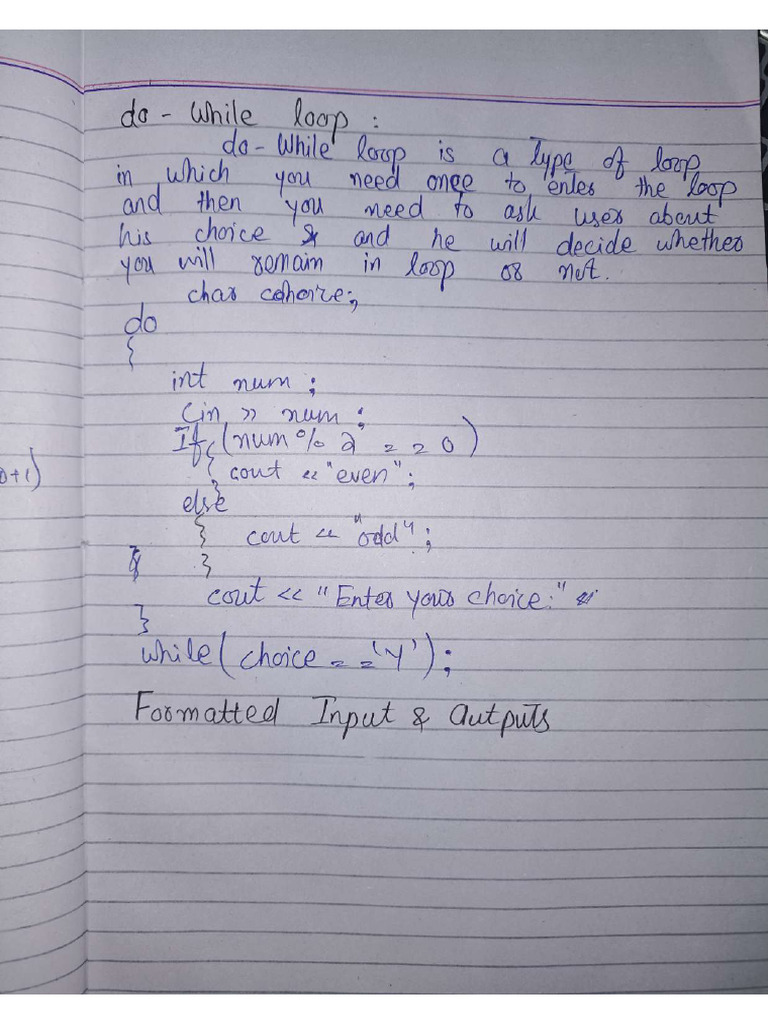 do - While loop :
do - While loop is a type of loop
in which you need once to enter the loop
and then you need to ask user about
his choice and he will decide whether
you will remain in loop or not.
char cohoice;
do
{
int num ;
Cin >> num ;
If (num % 2 == 0)
{ cout << "even";
}
else
{ cout << "odd";
}
cout << "Enter your choice:"
}
while( choice == 'Y' );
Formatted Input & Outputs
0+1)